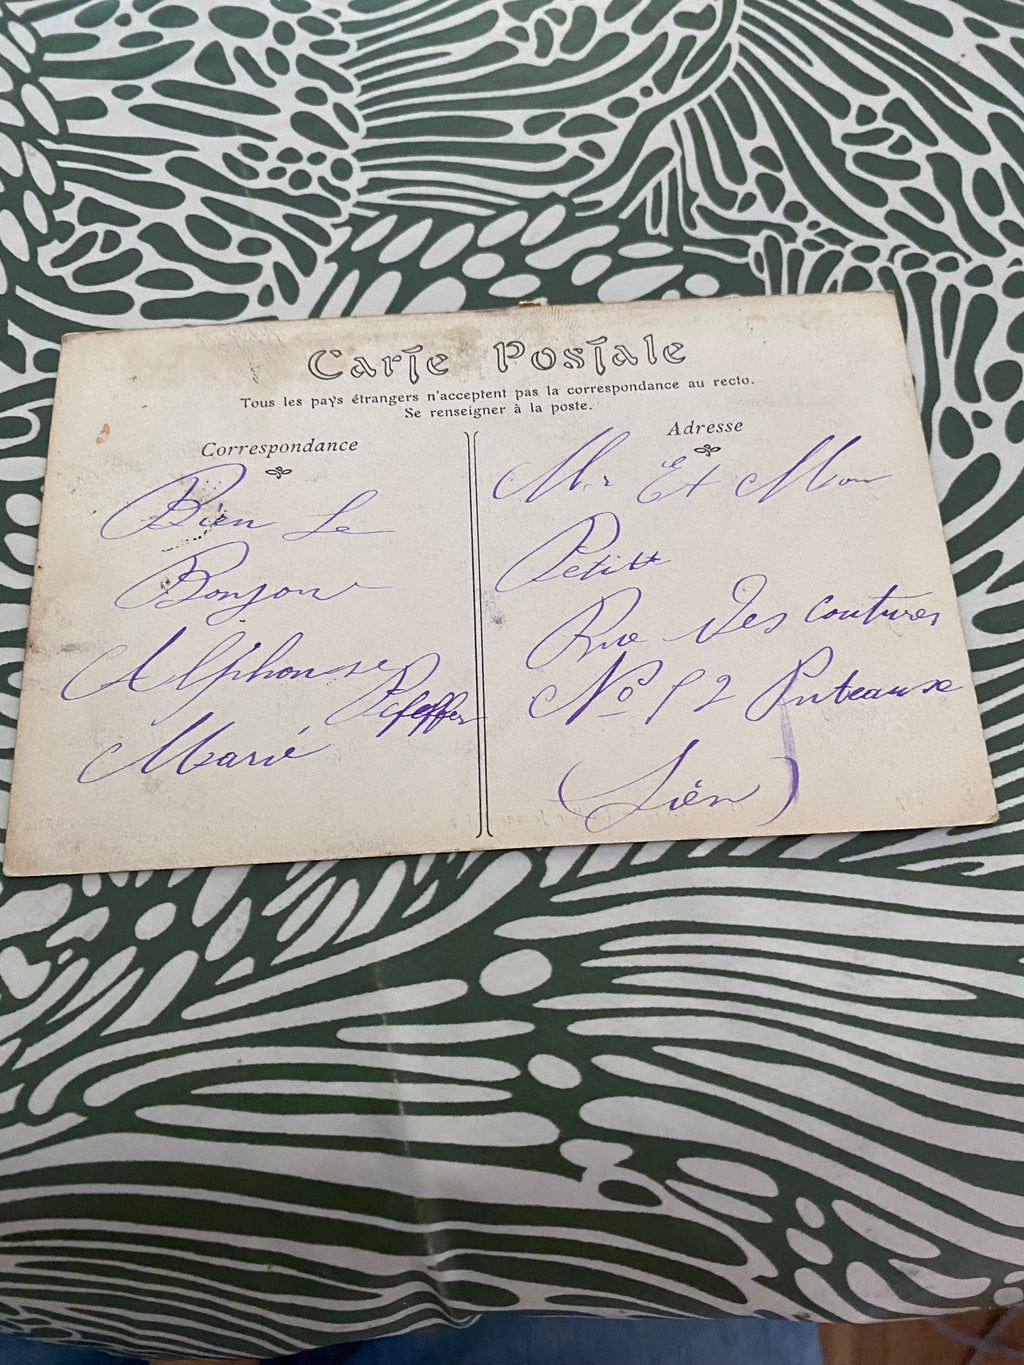 Carte Postale
Tous les pays étrangers n'acceptent pas la correspondance au recto.
Se renseigner à la poste.
Correspondance
Bien Le
Bonjour
Alphonse
Pfeffer
Marie
Adresse
Mr Et Mme
Petitt
Rue Des coutures
No 52 Puteause